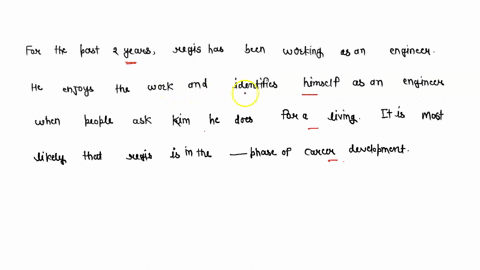 For the past 2 years, regis has been working as an engineer.
He enjoys the work and identifies himself as an engineer
when people ask kim he does for a living. It is most
likely that regis is in the — phase of career development.